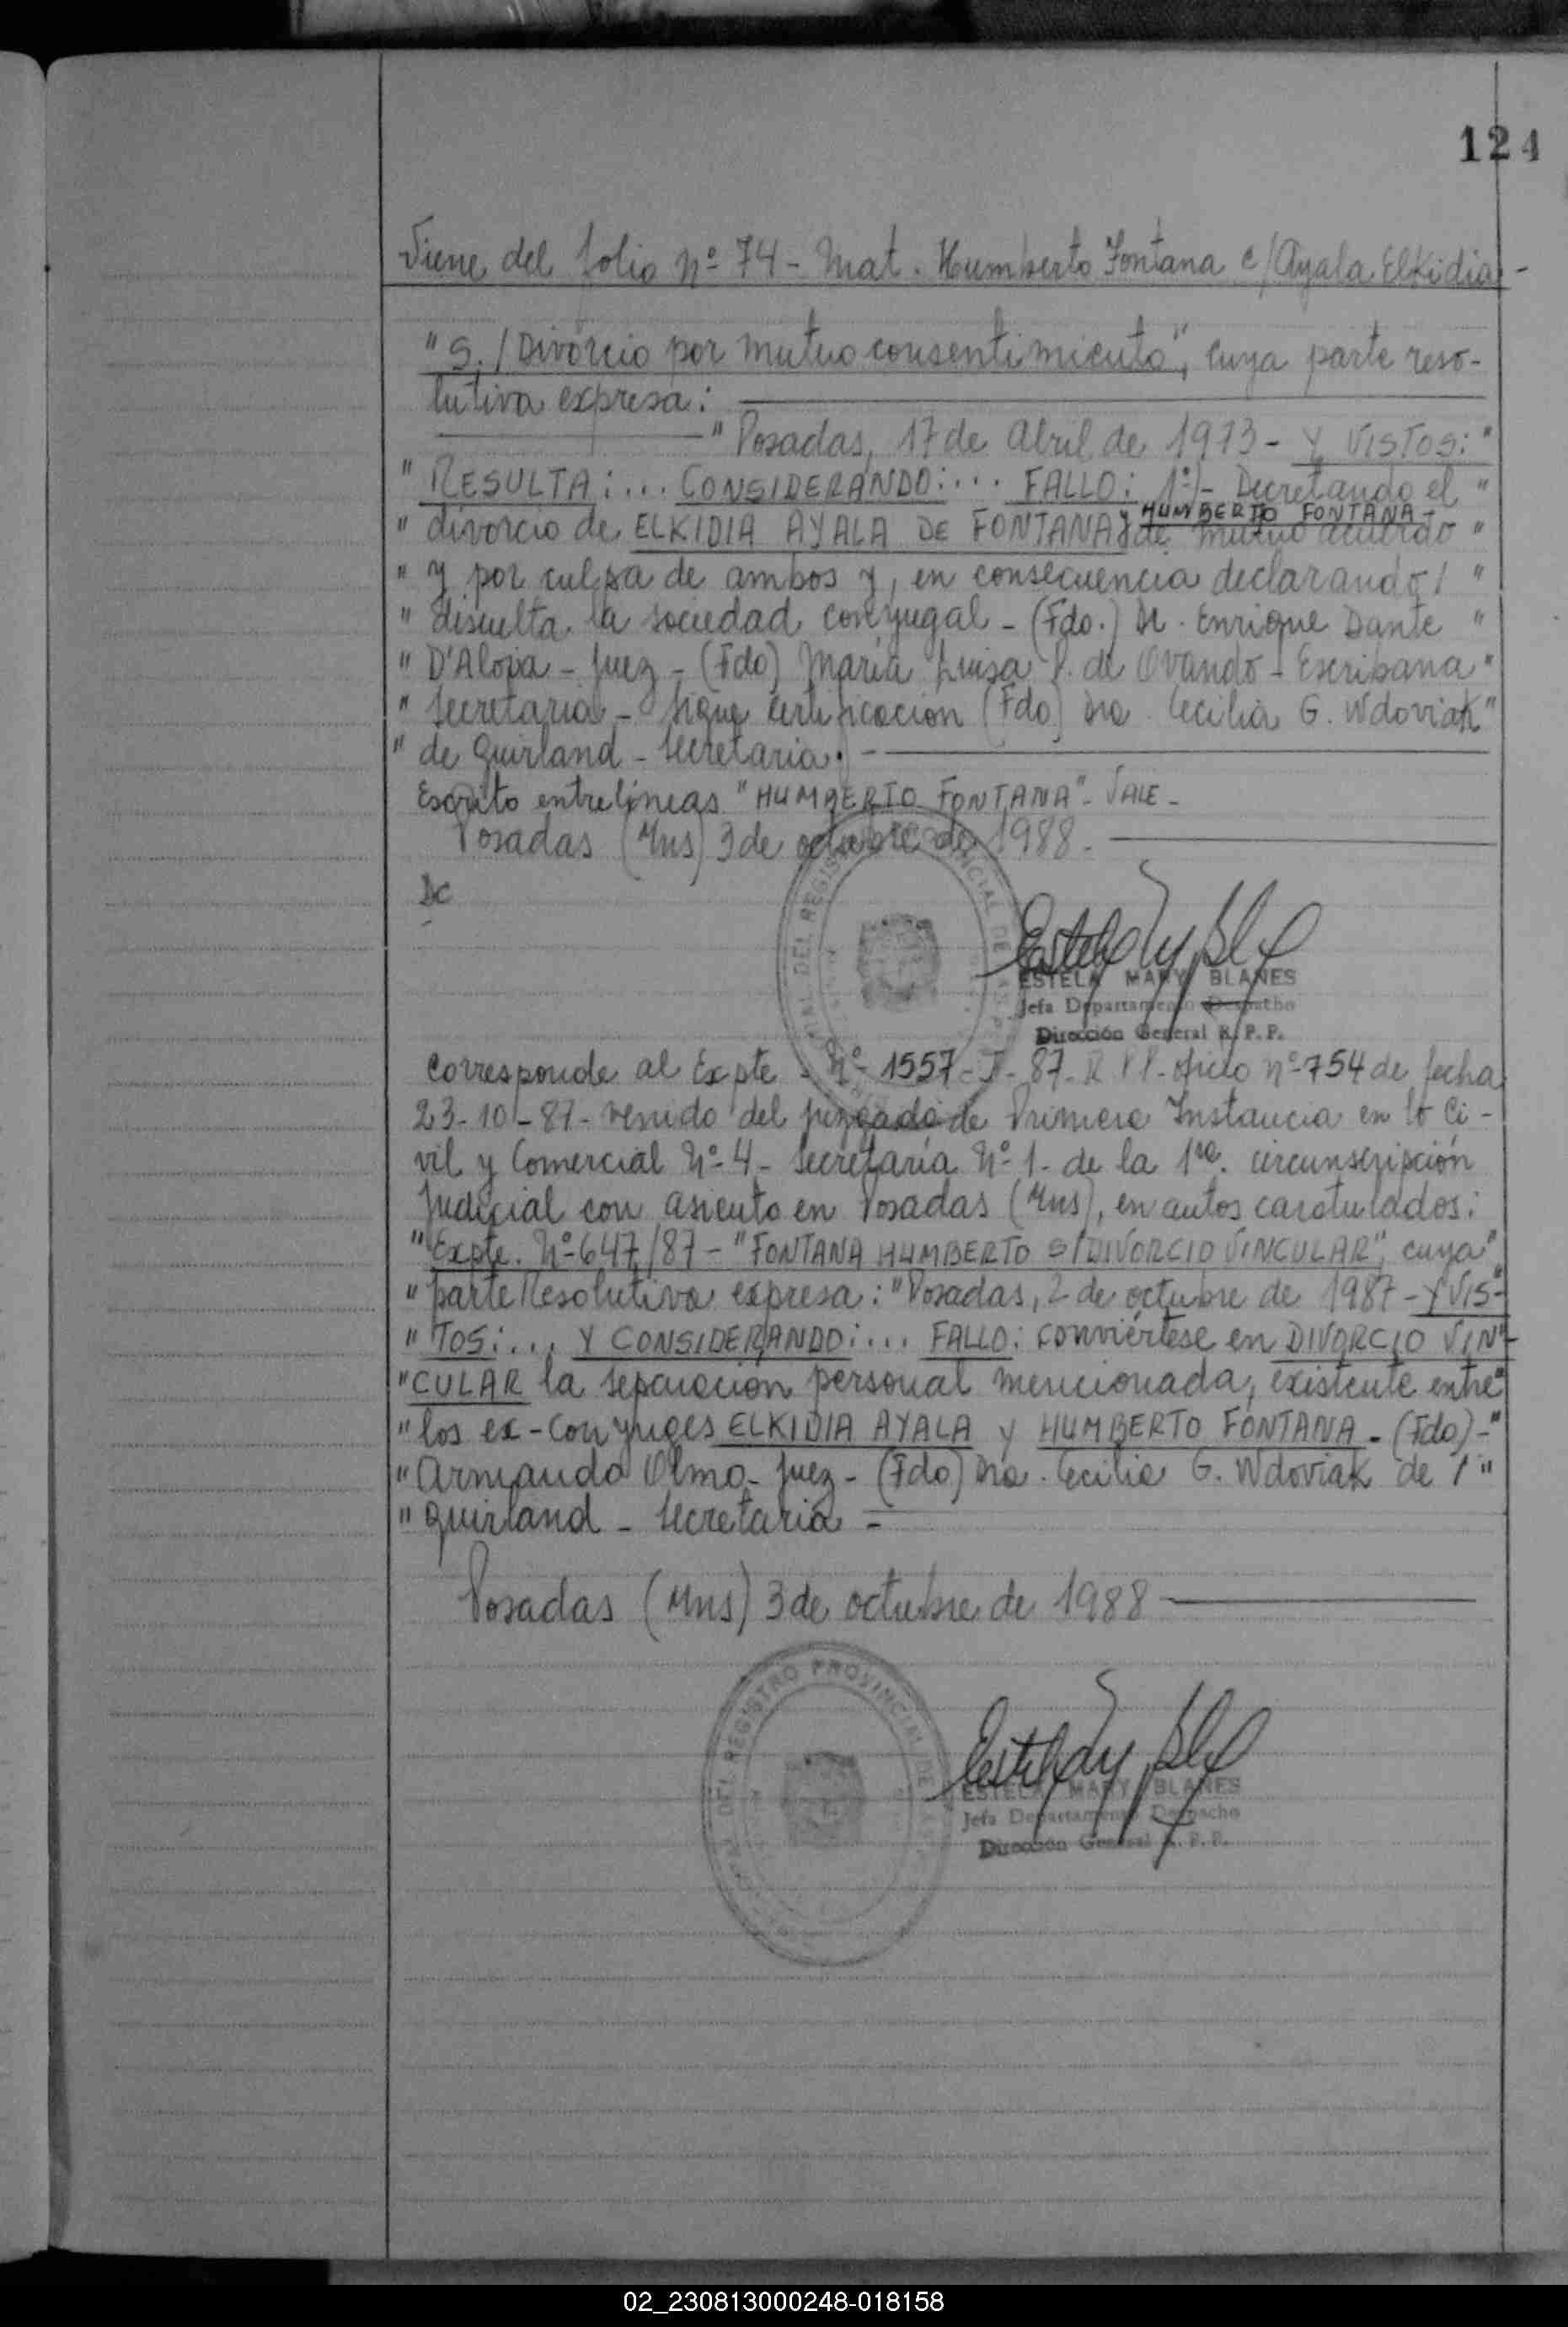 124
Viene del folio Nº 74 - Mat. Humberto Fontana c/ Ayala Elkidia -
"S./ Divorcio por mutuo consentimiento", cuya parte reso-
lutiva expresa:
" Posadas, 17 de Abril de 1973 - Y VISTOS: "
" RESULTA: ... CONSIDERANDO: ... FALLO: 1º) - Decretando el "
HUMBERTO FONTANA -
" divorcio de ELKIDIA AYALA DE FONTANA y de mutuo acuerdo "
" y por culpa de ambos y, en consecuencia declarando / "
" disuelta la sociedad conyugal - (Fdo.) Dr. Enrique Dante "
" D'Aloia - Juez - (Fdo) María Luisa P. de Ovando - Escribana "
" Secretaria - Sigue certificación (Fdo) Dra. Cecilia G. Wdoviak "
" de Guirland - Secretaria. -
Escrito entrelíneas "HUMBERTO FONTANA" - VALE -
Posadas (Mns) 3 de octubre de 1988 -
Dc
DEL REGISTRO PROVINCIAL DE
ESTELA MARY BLANES
Jefa Departamento Despacho
Dirección General R. P. P.
Corresponde al Expte - Nº 1557 - J - 87 - R.P.P. - Oficio nº 754 de fecha
23-10-87 - venido del Juzgado de Primera Instancia en lo Ci-
vil y Comercial Nº 4 - Secretaría Nº 1 - de la 1ra. circunscripción
Judicial con asiento en Posadas (Mns), en autos caratulados:
"Expte. Nº 647/87 - "FONTANA HUMBERTO S/DIVORCIO VINCULAR", cuya "
" parte Resolutiva expresa: "Posadas, 2 de octubre de 1987 - Y VIS- "
" TOS: ... Y CONSIDERANDO: ... FALLO: conviértese en DIVORCIO VIN- "
" CULAR la separación personal mencionada, existente entre "
" los ex-conyuges ELKIDIA AYALA y HUMBERTO FONTANA - (Fdo) - "
" Armando Olmo - Juez - (Fdo) Dra. Cecilia G. Wdoviak de / "
" Guirland - Secretaria -
Posadas (Mns) 3 de octubre de 1988
DEL REGISTRO PROVINCIAL DE
ESTELA MARY BLANES
Jefa Departamento Despacho
Dirección General R. P. P.
02_230813000248-018158